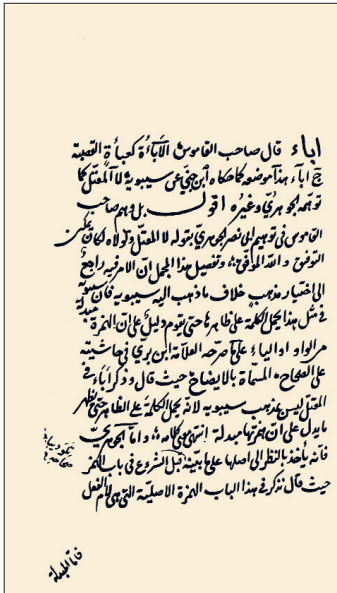 اباء قال صاحب القاموس الأباءة كعباءة القصبة
ج أباء هذا موضعه كما حكاه ابن جنى عن سيبويه لا المعتل كما
توهمه الجوهرىّ وغيره اقول بل وهم صاحب
القاموس فى توهيم ابى نصر الجوهرى بقوله لا المعتل ولولاه لكان يمكن
التوفيق والله الموفق وتفصيل هذا المجمل ان الامر فيه راجع
الى اختيار مذهب خلاف ماذهب اليه سيبويه فان سيبويه
فى مثل هذا يحمل الكلمة على ظاهرها حتى يقوم دليل على ان الهمزة مبدلة
من الواو او الياء على ما صرحه العلامة ابن برى فى حاشيته
على الصحاح المسماة بالايضاح حيث قال وذكر اباء فى
المعتل ليس مذهب سيبويه لانه يحمل الكلمة على الظاهر حتى يظهر
مايدل على انّ همزتها مبدلة انتهى كلامه واما الجوهرىّ
فانه يأخذ بالنظر الى اصلها على ما بيّنه قبل الشروع فى باب الهمز
حيث قال نذكر فى هذا الباب الهمزة الاصليّة التى هى لام الفعل
فاما المبدلة